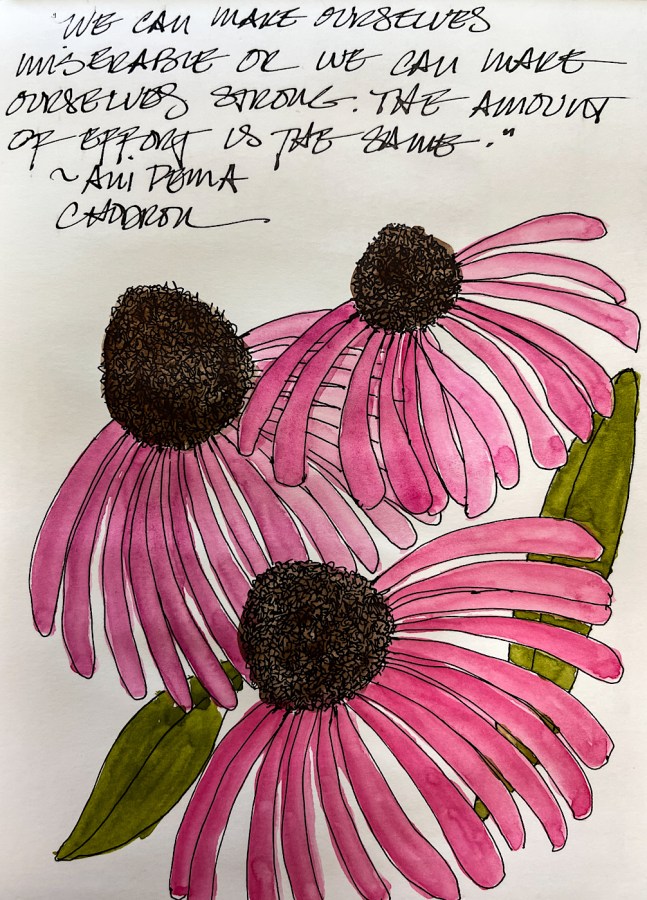 "WE CAN MAKE OURSELVES
MISERABLE OR WE CAN MAKE
OURSELVES STRONG. THE AMOUNT
OF EFFORT IS THE SAME."
~ANI PEMA
CHODRON